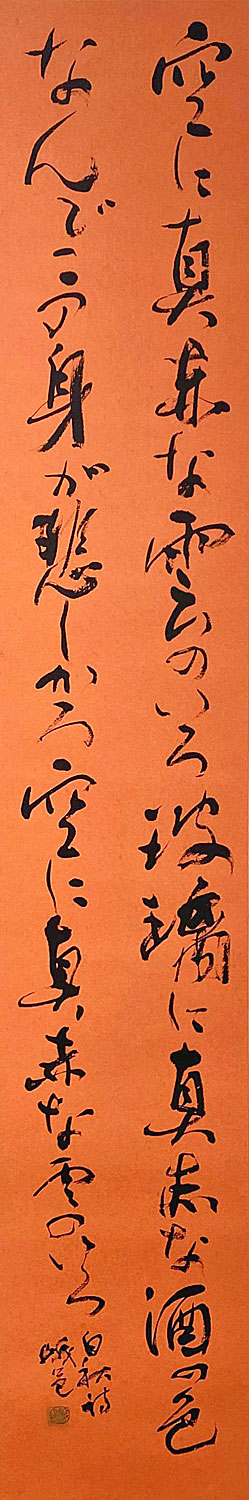 空に真赤な雲のいろ玻璃に真赤な酒の色
なんでこの身が悲しかろ空に真赤な雲のいろ
白秋詩